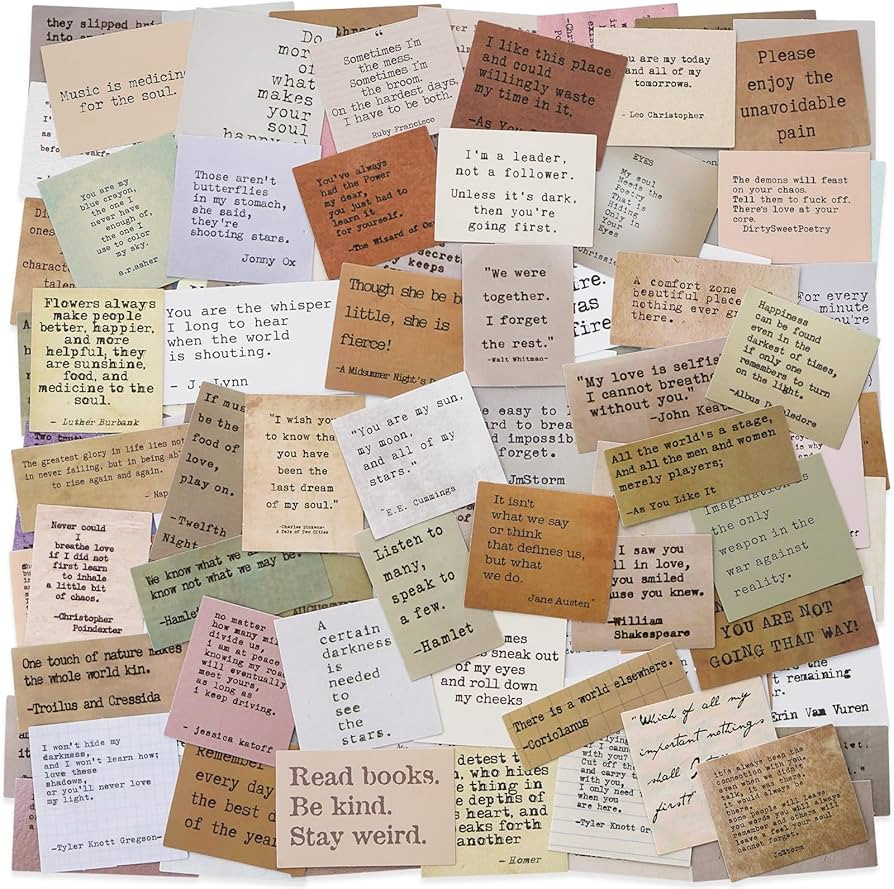 they slipped
Music is medicine
for the soul.
Do
more
of
what
makes
your
soul
happy
Sometimes I'm
the mess.
Sometimes I'm
the broom.
On the hardest days,
I have to be both.
Ruby Francisco
I like this place
and could
willingly waste
my time in it.
-As You
you are my today
and all of my
tomorrows.
- Leo Christopher
Please
enjoy the
unavoidable
pain
You are my
blue crayon,
the one I
never have
enough of,
the one I
use to color
my sky.
a.r.asher
Those aren't
butterflies
in my stomach,
she said,
they're
shooting stars.
Jonny Ox
You've always
had the Power
my dear,
you just had to
learn it
for yourself.
-The Wizard of Oz
I'm a leader,
not a follower.
Unless it's dark,
then you're
going first.
EYES
My soul
Needs the
Poetry
That Is
Hiding
Only In
Your
Eyes
The demons will feast
on your chaos.
Tell them to fuck off.
There's love at your
core.
DirtySweetPoetry
secret
keeps
Flowers always
make people
better, happier,
and more
helpful, they
are sunshine,
food, and
medicine to the
soul.
- Luther Burbank
You are the whisper
I long to hear
when the world
is shouting.
- J. Lynn
Though she be b
little, she is
fierce!
-A Midsummer Night's D
"We were
together.
I forget
the rest."
-Walt Whitman-
was
fire
A comfort zone
beautiful place
nothing ever g
there.
For every
minute
you're
Happiness
can be found
even in the
darkest of times,
if only one
remembers to turn
on the light.
-Albus Dumbledore
"My love is selfis
I cannot breathe
without you."
-John Keat
Two
The greatest glory in life lies not
in never failing, but in being ab
to rise again and again.
- Nap
If mus
be the
food of
love,
play on.
-Twelfth
Night
"I wish you
to know tha
you have
been the
last dream
of my soul."
-Charles Dickens-
A Tale of Two Cities
"You are my sun,
my moon,
and all of my
stars."
-E.E. Cummings
easy to
ard to brea
impossib
forget.
JmStorm
All the world's a stage,
And all the men and women
merely players;
-As You Like It
Imagination is
the only
weapon in the
war against
reality.
Never could
I
breathe love
if I did not
first learn
to inhale
a little bit
of chaos.
-Christopher
Poindexter
We know what we a
know not what we may be.
-Hamlet
Listen to
many,
speak to
a few.
-Hamlet
It isn't
what we say
or think
that defines us,
but what
we do.
Jane Austen"
I saw you
in love,
you smiled
use you knew.
-William
Shakespeare
YOU ARE NOT
GOING THAT WAY!
One touch of nature makes
the whole world kin.
-Troilus and Gressida
no matter
how many mil
divide us,
i am at peace
knowing my road
will eventually
meet yours,
as long as
i keep driving.
- jessica katoff
A
certain
darkness
is
needed
to
see
the
stars.
sneak out
of my eyes
and roll down
my cheeks
There is a world elsewhere.
-Coriolanus
remaining
Erin Van Vuren
I won't hide my
darkness,
and I won't learn how;
love these
shadows,
or you'll never love
my light.
-Tyler Knott Gregson-
Remember
every day
the best d
of the year
Read books.
Be kind.
Stay weird.
detest
who hides
thing in
e depths of
s heart, and
eaks forth
another
- Homer
I cannot
with you?
Cut off th
and carry
with you,
I only need
when you
are here.
-Tyler Knott Gr
"Which of all my
important nothings
shall I
first?"
it's always been the
connection with you,
even when we didn't
talk, it was there.
it would always be
there.
some people will leave
you words you will always
remember and others will
leave a feel your soul
cannot forget.
JmStorm